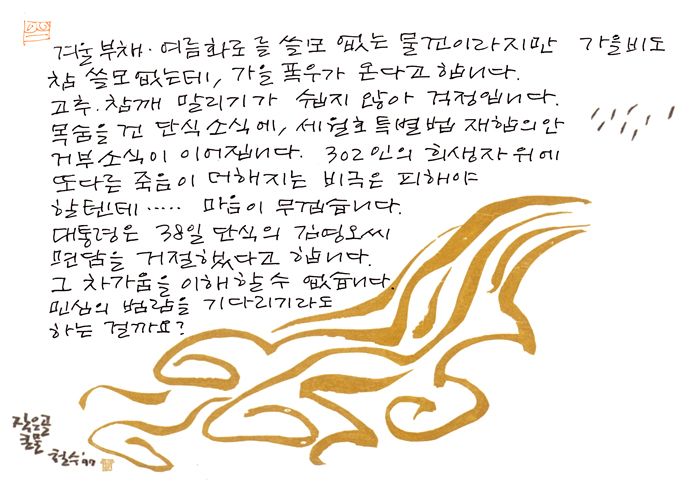 겨울부채·여름화로를 쓸모 없는 물건이라지만 가을비도
참 쓸모없는데, 가을 폭우가 온다고 합니다.
고추·참깨 말리기가 쉽지 않아 걱정입니다.
목숨을 건 단식소식에, 세월호특별법 재합의안
거부소식이 이어집니다. 302인의 희생자 위에
또다른 죽음이 더해지는 비극은 피해야
할텐데..... 마음이 무겁습니다.
대통령은 38일 단식의 김영오씨
면담을 거절했다고 합니다.
그 차가움을 이해할 수 없습니다.
민심의 범람을 기다리기라도
하는 걸까요?
작은골
큰물
철수'97